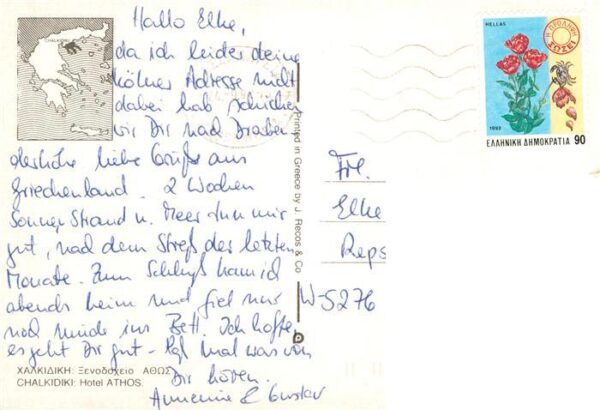 CHALKIDIKI
Hallo Elke,
da ich leider deine
Kölner Adresse nicht
dabei hab schicken
wir Dir nach Draben-
derhöhe liebe Grüße aus
Griechenland. 2 Wochen
Sonne Strand u. Meer tun mir
gut, nach dem Streß der letzten
Monate. Zum Schluß kam ich
abends heim und fiel nur
noch müde ins Bett. Ich hoffe
es geht Dir gut - laß mal was von
Dir hören.
Annemie & Gustav
ΧΑΛΚΙΔΙΚΗ: Ξενοδοχείο ΑΘΩΣ
CHALKIDIKI: Hotel ATHOS.
Printed in Greece by J. Recos & Co
HELLAS
ΣΩΖΕΙ
ΕΛΛΗΝΙΚΗ ΔΗΜΟΚΡΑΤΙΑ 90
Frl.
Elke
Reps
W-5276